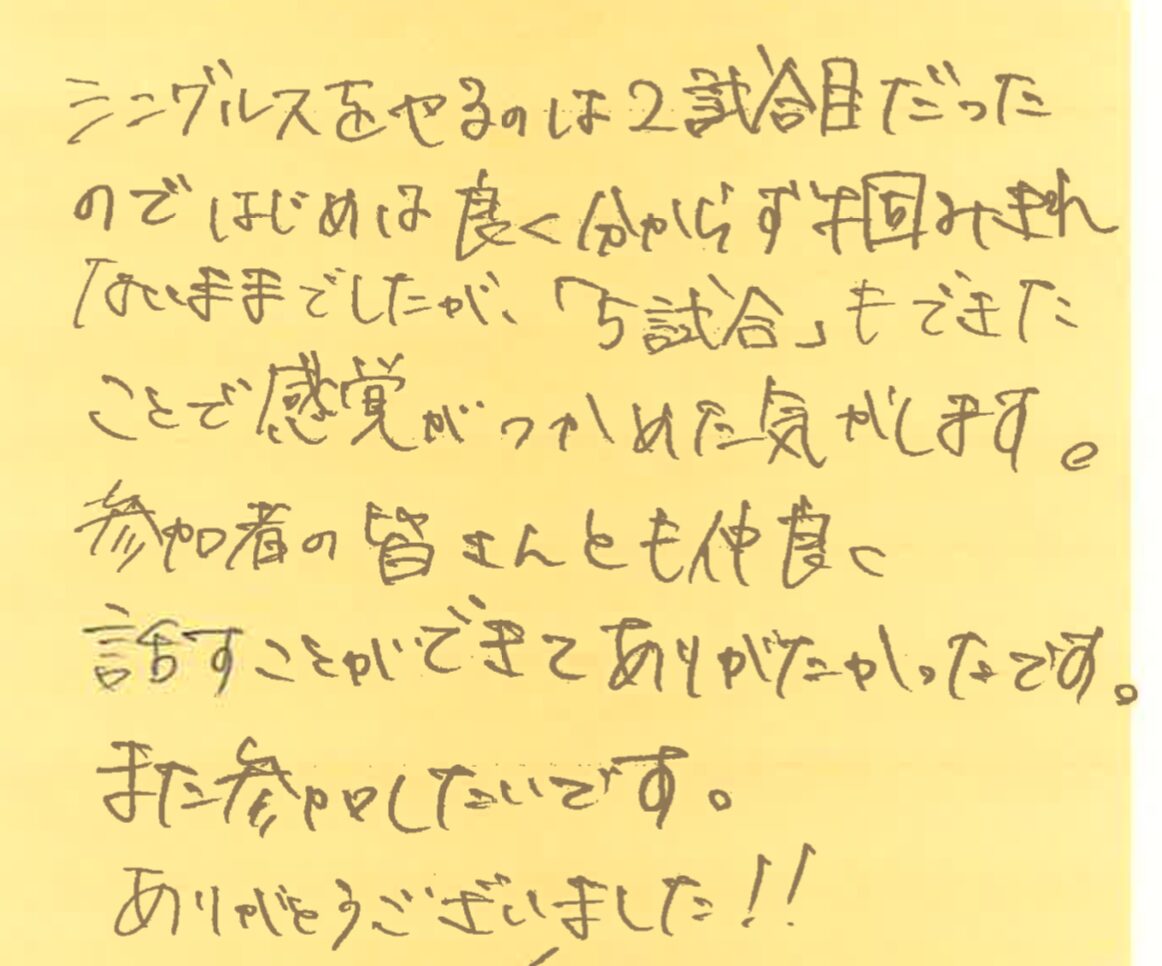 シングルスをやるのは2試合目だった
のではじめは良く分からず半回みきれ
ないままでしたが、「5試合」もできた
ことで感覚がつかめた気がします。
参加者の皆さんとも仲良く
話すことができてありがたかったです。
また参加したいです。
ありがとうございました!!